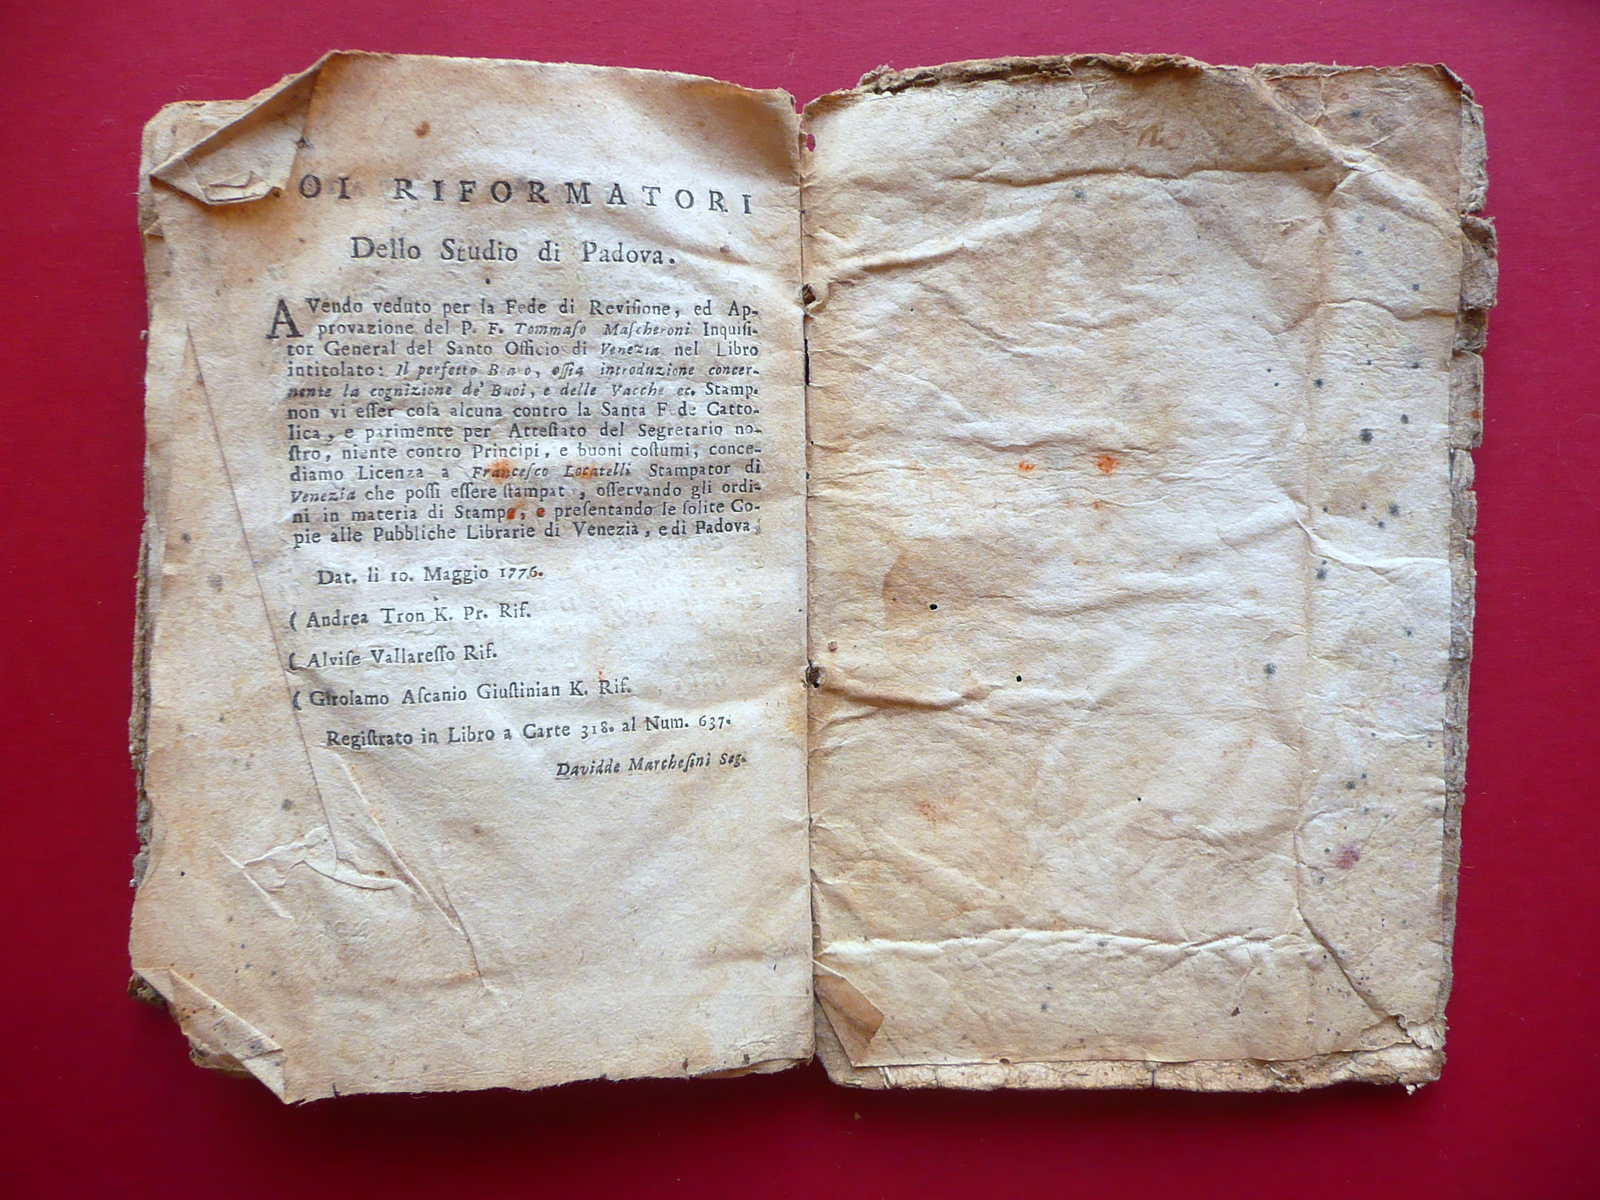 OI RIFORMATORI
Dello Studio di Padova.
AVendo veduto per la Fede di Reviſione, ed Ap-
provazione del P. F. Tommaſo Maſcheroni Inquiſi-
tor General del Santo Officio di Venezia nel Libro
intitolato: Il perfetto Boaro, oſſia introduzione concer-
nente la cognizione de' Buoi, e delle Vacche ec. Stamp.
non vi eſſer coſa alcuna contro la Santa Fede Catto-
lica, e parimente per Atteſtato del Segretario no-
ſtro, niente contro Principi, e buoni coſtumi, conce-
diamo Licenza a Franceſco Locatelli Stampator di
Venezia che poſſi eſſere ſtampat, oſſervando gli ordi-
ni in materia di Stampe, e preſentando le ſolite Co-
pie alle Pubbliche Librarie di Venezia, e di Padova.
Dat. li 10. Maggio 1776.
( Andrea Tron K. Pr. Rif.
( Alviſe Vallareſſo Rif.
( Girolamo Aſcanio Giuſtinian K. Rif.
Regiſtrato in Libro a Carte 318. al Num. 637.
Davidde Marcheſini Seg.